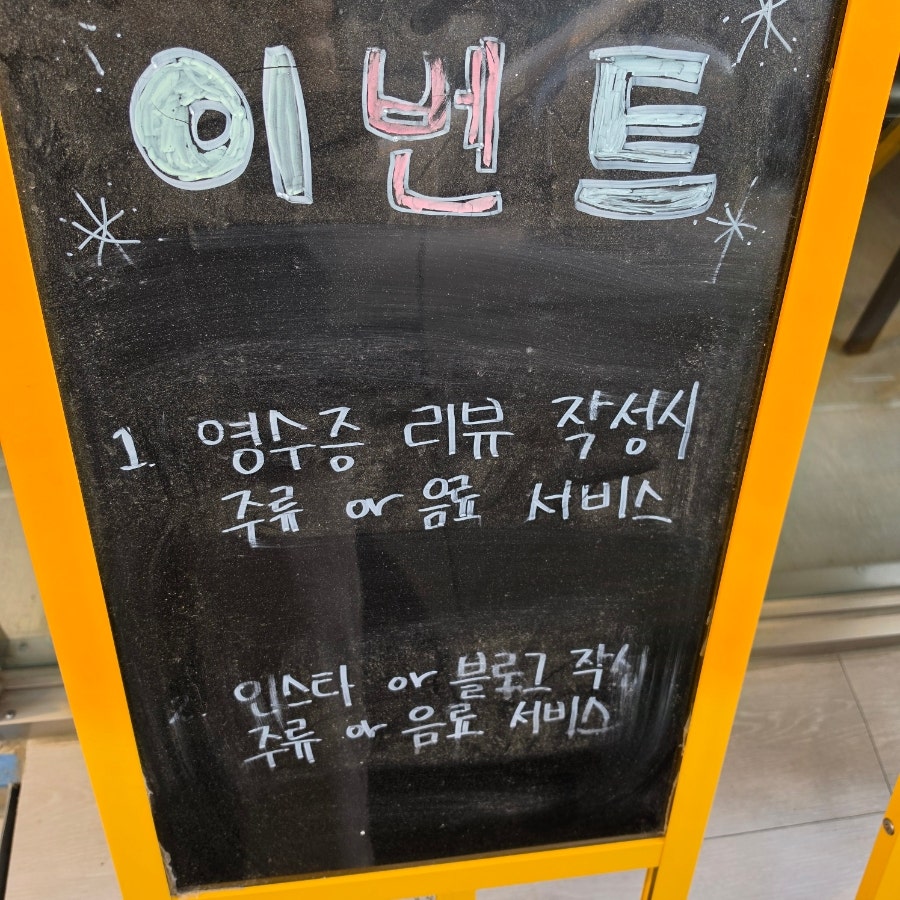 이벤트
1. 영수증 리뷰 작성시
주류 or 음료 서비스
인스타 or 블로그
주류 or 음료 서비스